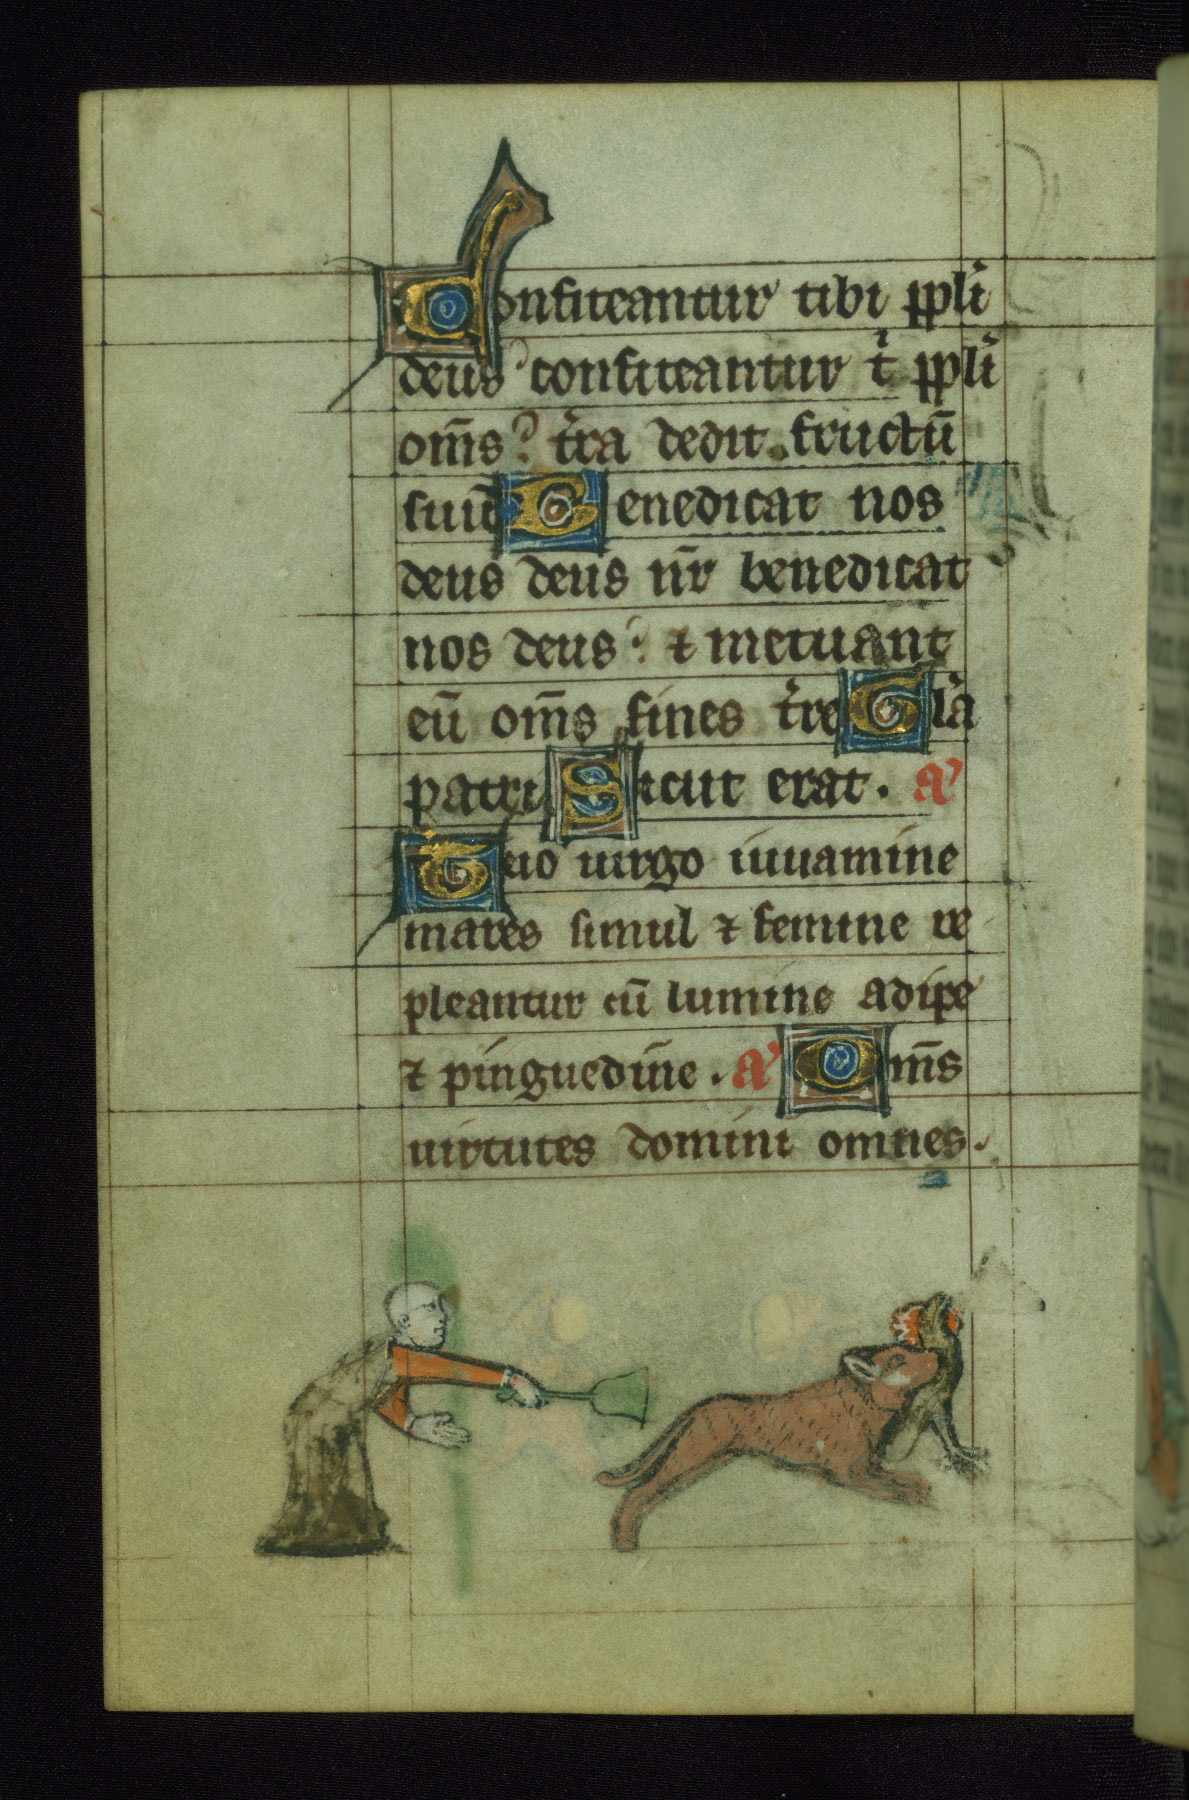 Confiteantur tibi ppli
deus confiteantur t ppli
om̄s? tra dedit fructū
suū Benedicat nos
deus deus nr̄ benedicat
nos deus? ⁊ metuant
eū om̄s fines tre Gla
patri Sicut erat. a
Tuo uirgo iuuamine
mares simul ⁊ femine re
pleantur cū lumine adipe
⁊ pinguedine. a Om̄s
uirtutes domini omnes.